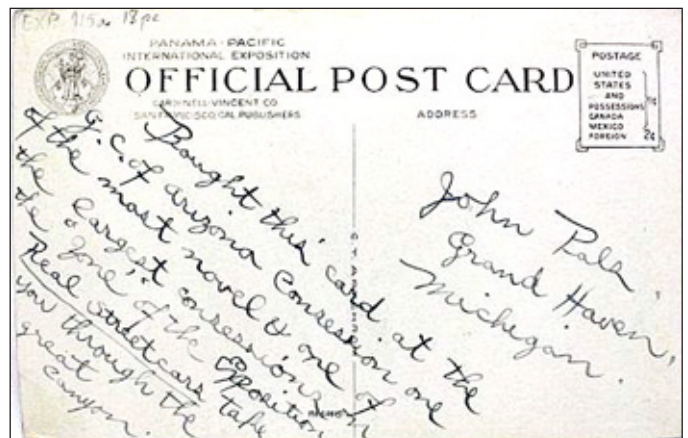 PANAMA-PACIFIC
INTERNATIONAL EXPOSITION
OFFICIAL POST CARD
CARDINELL-VINCENT CO
SAN FRANCISCO, CAL. PUBLISHERS
ADDRESS
POSTAGE
UNITED
STATES
AND
POSSESSIONS
CANADA
MEXICO
1¢
FOREIGN 2¢
Bought this card at the
G.C. of arizona Consession one
of the most novel & one of
the largest consessions in
the "Zone" of the Exposition
Real streetcars take
you through the
great
canyon.
John
Grand Haven,
Michigan.